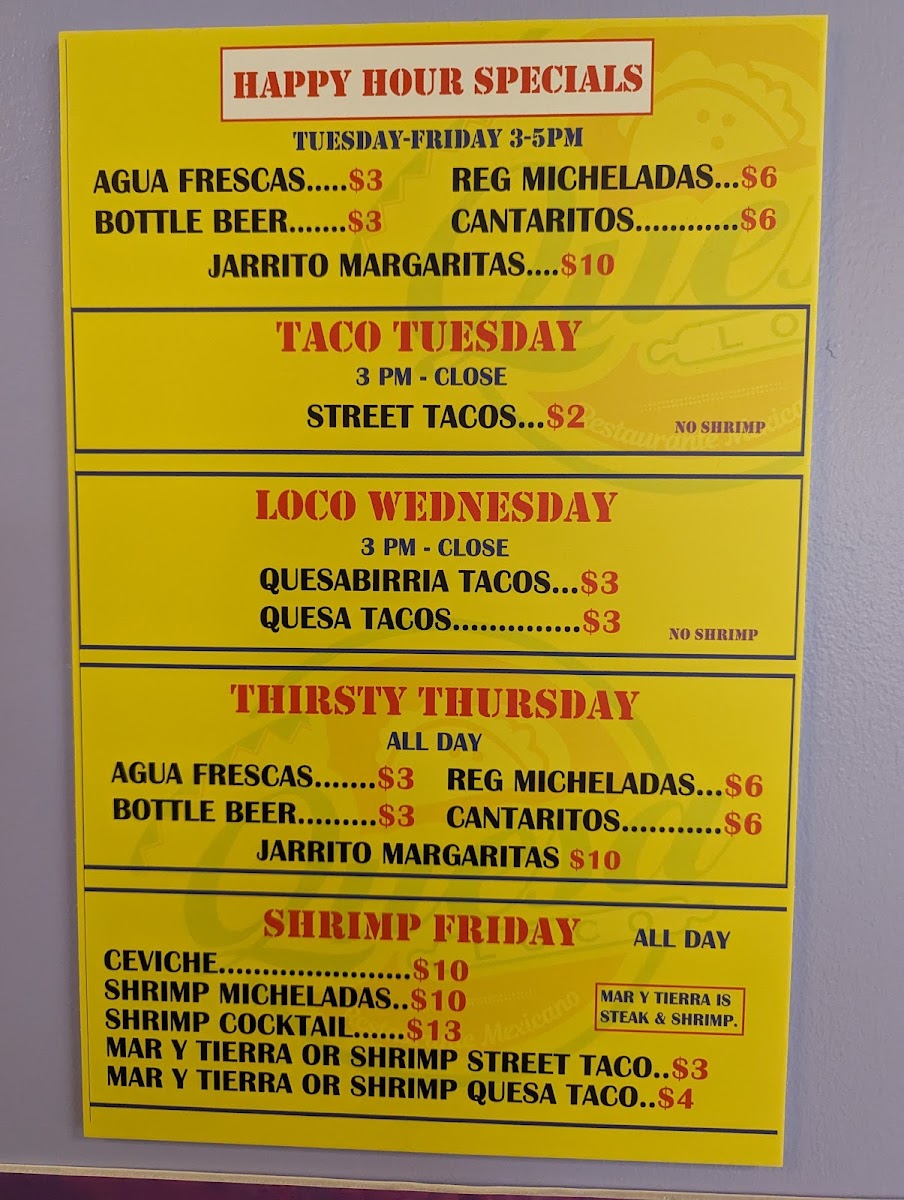 HAPPY HOUR SPECIALS
TUESDAY-FRIDAY 3-5PM
AGUA FRESCAS.....$3 REG MICHELADAS...$6
BOTTLE BEER.......$3 CANTARITOS............$6
JARRITO MARGARITAS....$10
TACO TUESDAY
3 PM - CLOSE
STREET TACOS...$2
NO SHRIMP
LOCO WEDNESDAY
3 PM - CLOSE
QUESABIRRIA TACOS...$3
QUESA TACOS..............$3
NO SHRIMP
THIRSTY THURSDAY
ALL DAY
AGUA FRESCAS.......$3 REG MICHELADAS...$6
BOTTLE BEER.........$3 CANTARITOS...........$6
JARRITO MARGARITAS $10
SHRIMP FRIDAY ALL DAY
CEVICHE......................$10
SHRIMP MICHELADAS..$10
SHRIMP COCKTAIL......$13
MAR Y TIERRA IS
STEAK & SHRIMP.
MAR Y TIERRA OR SHRIMP STREET TACO..$3
MAR Y TIERRA OR SHRIMP QUESA TACO..$4